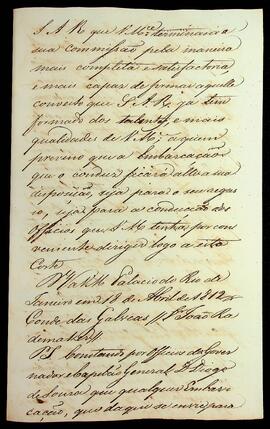 S. A. R. que V. M.ce terminará a
sua commissão pela maneira
mais completa e satisfactoria
e mais capas de firmar aquelle
conceito que S. A. R. já tem
formado dos talentos, e mais
qualidades de V. M.ce; a quem
previno que a embarcação
que o conduz ficará alli a sua
disposição, seja para o seu regres
so, seja para a conducção dos
Officios que V. M.ce tenha por con
veniente dirigir logo a esta
Corte.
Palacio do Rio de
Janeiro em 18 de Abril de 1812
Conde das Galveas // Sr. João Ra
demaker //
P. S. Constando por Officio do Gover
nador e Capitão General D. Diogo
de Souza que qualquer Embar
cação, que daqui se envie para